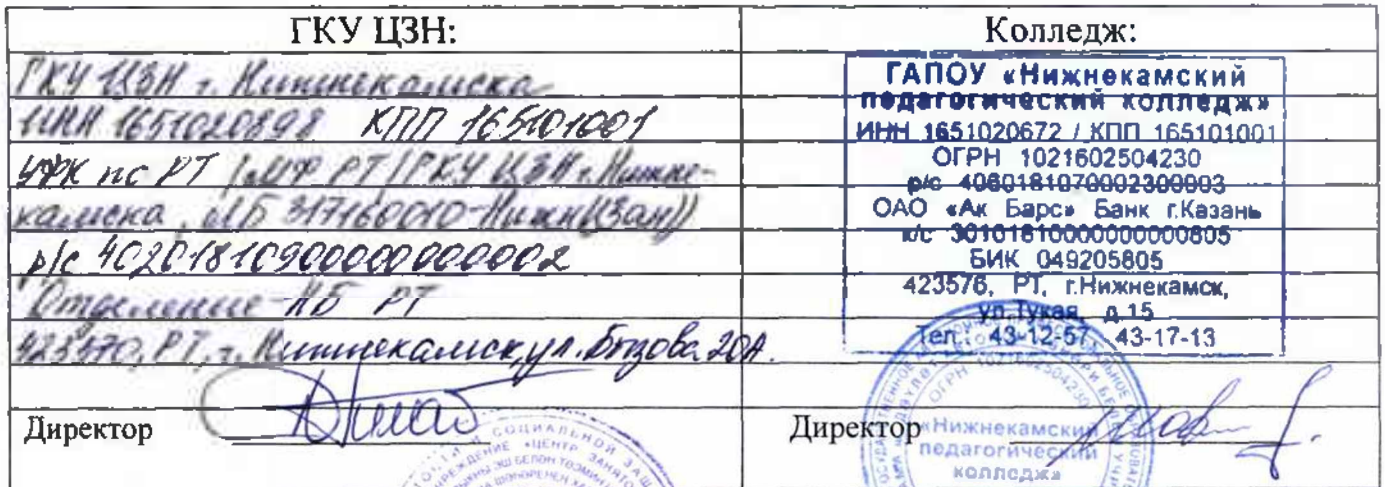 ГКУ ЦЗН:
ГКУ ЦЗН г. Нижнекамска
ИНН 1651020898 КПП 165101001
УФК по РТ (МФ РТ/ГКУ ЦЗН г. Нижне-
камска, ЛБ 317160010-НижнЦЗан))
р/с 40201810900000000002
Отделение-НБ РТ
423570, РТ, г. Нижнекамск, ул. Бызова 20А.
Директор
СОЦИАЛЬНОЙ
«ЦЕНТР ЗАНЯТО
Колледж:
ГАПОУ «Нижнекамский
педагогический колледж»
ИНН 1651020672 / КПП 165101001
ОГРН 1021602504230
р/с 40601810700002300003
ОАО «Ак Барс» Банк г.Казань
к/с 30101810000000000805
БИК 049205805
423576, РТ, г.Нижнекамск,
ул.Тукая, д.15
Тел.: 43-12-57, 43-17-13
Директор
ОГРН 1021602504230
«Нижнекамский
педагогический
колледж»